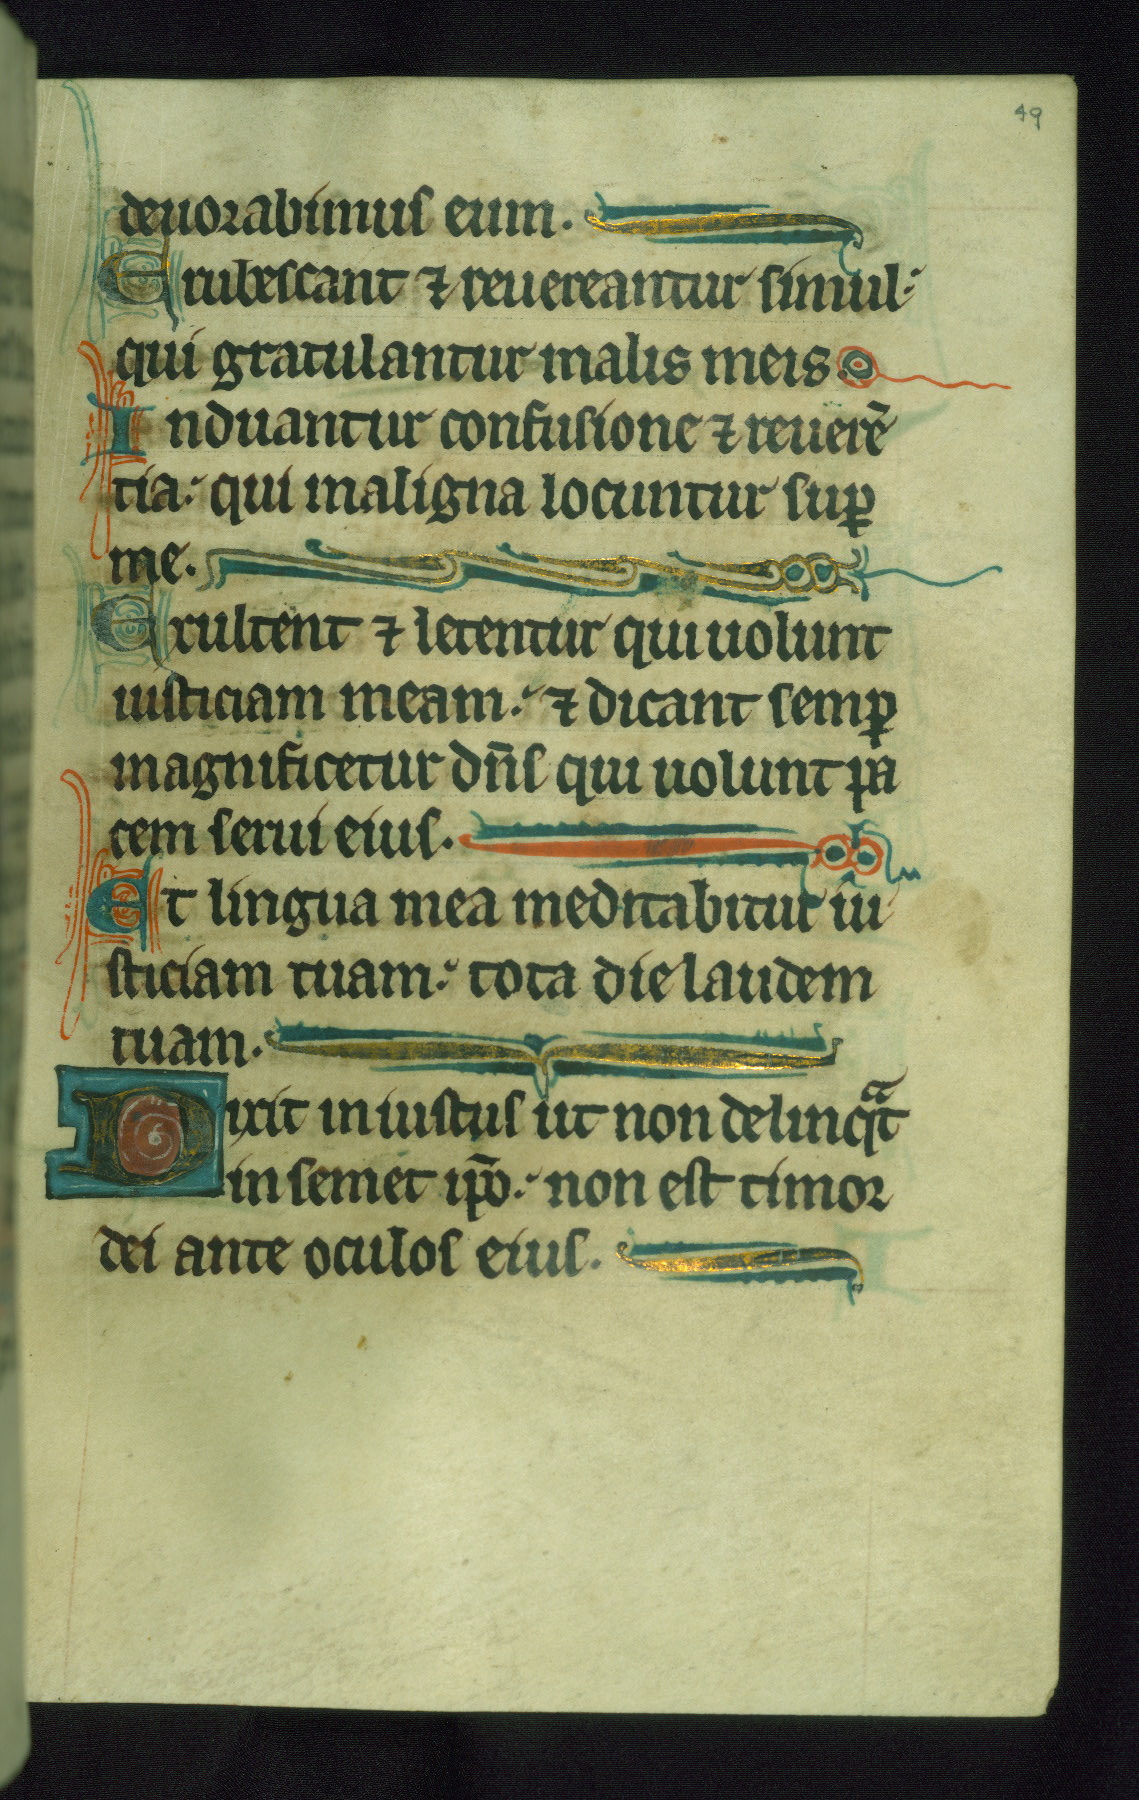 49
deuorabimus eum.
Erubescant ⁊ reuereantur simul:
qui gratulantur malis meis.
Induantur confusione ⁊ reuerē
tia: qui maligna locuntur suꝑ
me.
Exultent ⁊ letentur qui uolunt
iusticiam meam: ⁊ dicant semꝑ
magnificetur dn̄s qui uolunt pa
cem serui eius.
Et lingua mea meditabitur iu
sticiam tuam: tota die laudem
tuam.
Dixit iniustus ut non delinqᷓt
in semet ip̄o: non est timor
dei ante oculos eius.